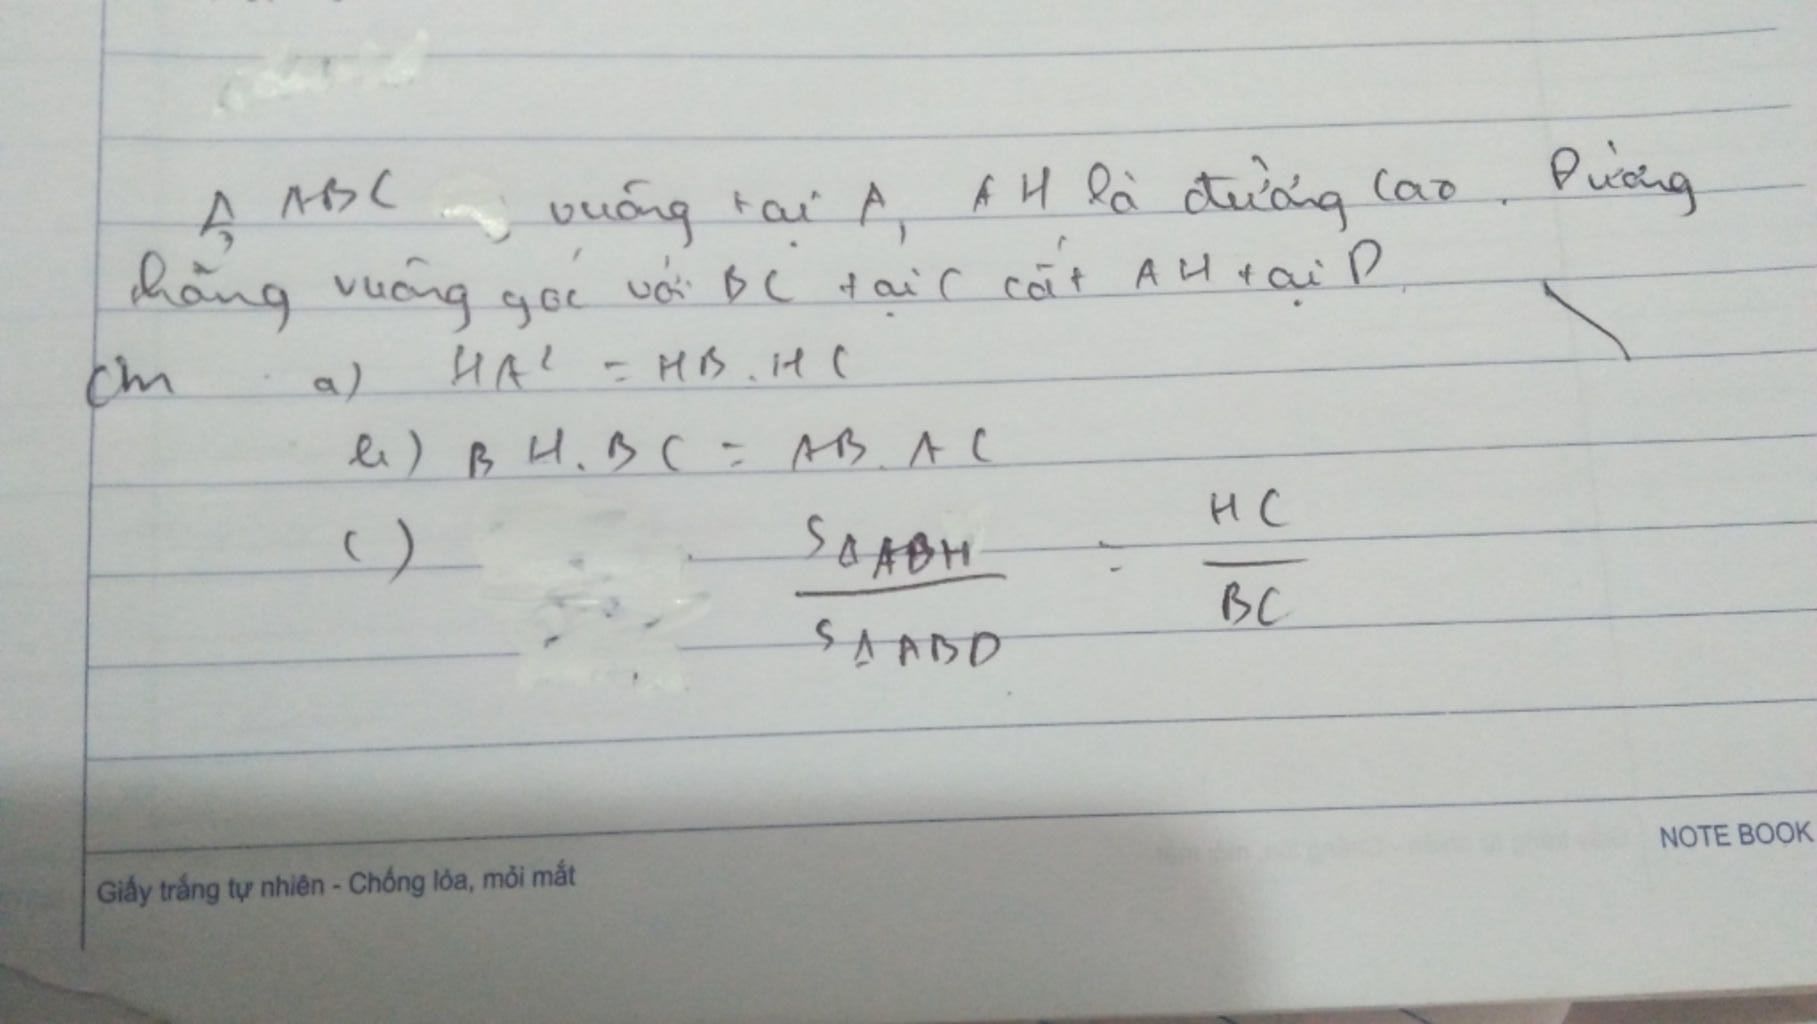 Δ ABC vuông tại A, AH là đường cao. Đường
thẳng vuông góc với BC tại C cắt AH tại D.
Cm a) HA² = HB.HC
b) BH.BC = AB.AC
c) S△ABH / S△ABD = HC / BC
NOTE BOOK
Giấy trắng tự nhiên - Chống lóa, mỏi mắt